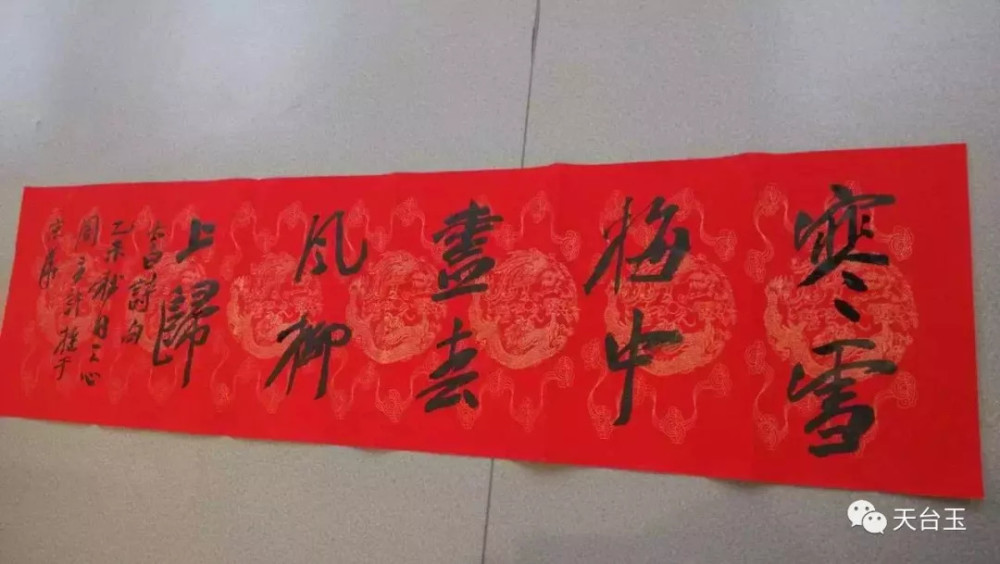 寒雪
梅中
盡春
風柳
上歸
太白詩句
乙未秋月
天台玉